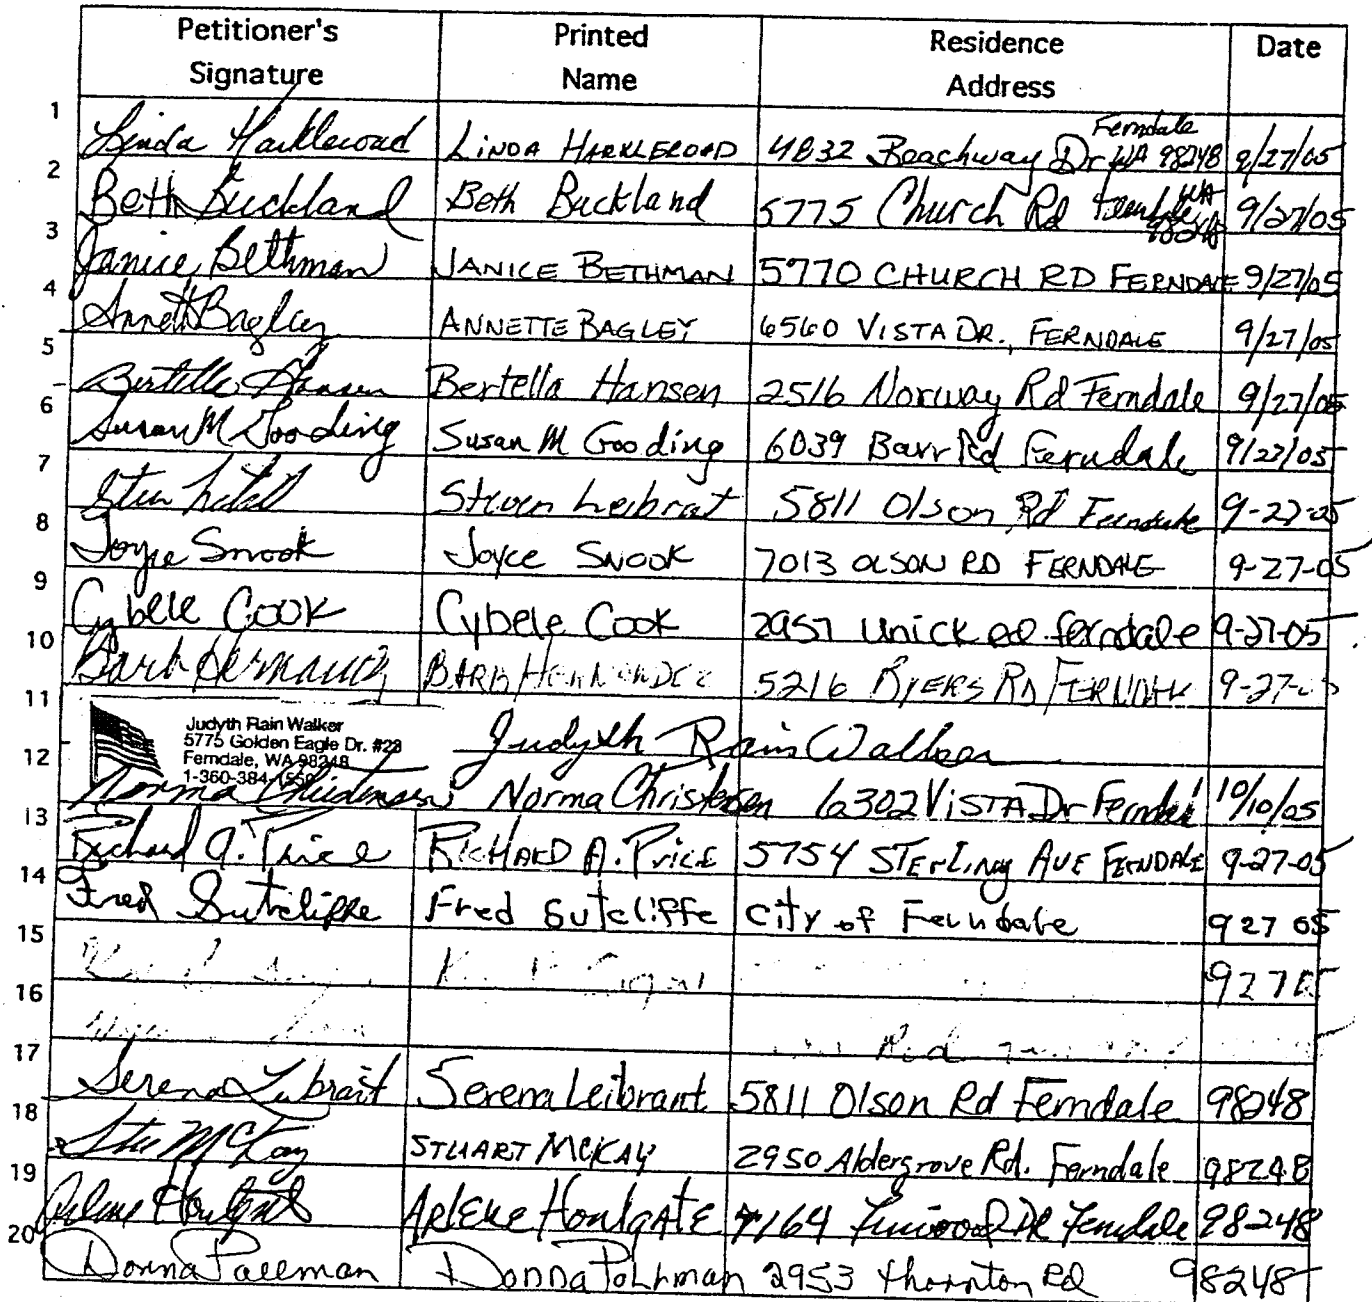 Petitioner's Signature Printed Name Residence Address Date
1 Linda Harkleroad LINDA HARKLEROAD 4832 Beachway Dr Ferndale WA 98248 9/27/05
2 Beth Buckland Beth Buckland 5775 Church Rd Ferndale WA 98248 9/27/05
3 Janice Bethman JANICE BETHMAN 5770 CHURCH RD FERNDALE 9/27/05
4 Annette Bagley ANNETTE BAGLEY 6560 VISTA DR., FERNDALE 9/27/05
5 Bertella Hansen Bertella Hansen 2516 Norway Rd Ferndale 9/27/05
6 Susan M Gooding Susan M Gooding 6039 Barr Rd Ferndale 9/27/05
7 Steven Leibrat 5811 Olson Rd Ferndale 9-27-05
8 Joyce Snook Joyce SNOOK 7013 OLSON RD FERNDALE 9-27-05
9 Cybele Cook Cybele Cook 2957 Unick Rd ferndale 9-27-05
10 Barb Hernandez BARB HERNANDEZ 5216 BYERS RD FERNDALE 9-27-05
11 Judyth Rain Walker
5775 Golden Eagle Dr. #28
Ferndale, WA 98248
1-360-384-1559
Judyth Rain Walker
12 Norma Christensen Norma Christensen 6302 VISTA Dr Ferndale 10/10/05
13 Richard A. Price RICHARD A. PRICE 5754 STERLING AVE FERNDALE 9-27-05
14 Fred Sutcliffe Fred Sutcliffe City of Ferndale 9 27 05
15 9 27 05
16 Rd
17 Serena Leibrant Serena Leibrant 5811 Olson Rd Ferndale 98248
18 Stu McKay STUART MCKAY 2950 Aldergrove Rd. Ferndale 98248
19 Arlene Houlgate ARLENE HOULGATE 7164 Dr Ferndale 98248
20 Donna Pollman Donna Pohlman 2953 thornton Rd 98248